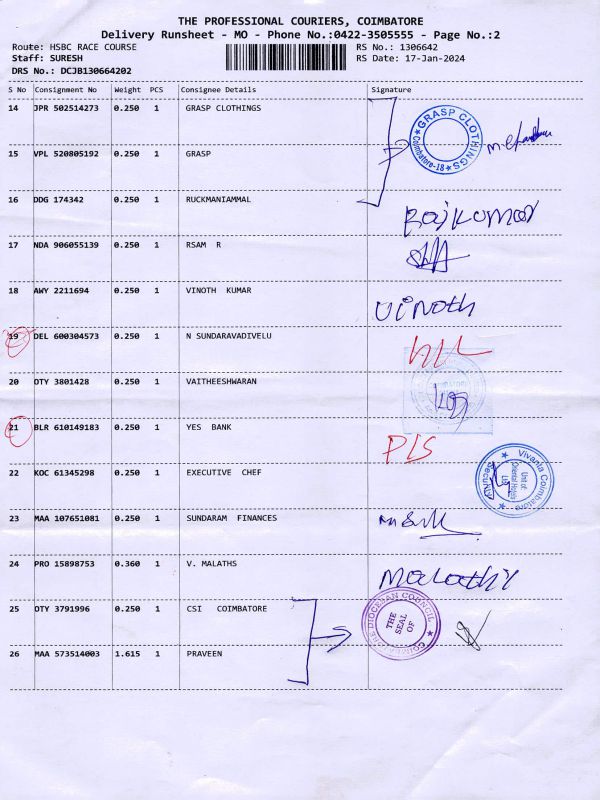 THE PROFESSIONAL COURIERS, COIMBATORE
Delivery Runsheet - MO - Phone No.:0422-3505555 - Page No.:2
Route: HSBC RACE COURSE RS No.: 1306642
Staff: SURESH RS Date: 17-Jan-2024
DRS No.: DCJB130664202
S No Consignment No Weight PCS Consignee Details Signature
14 JPR 502514273 0.250 1 GRASP CLOTHINGS
GRASP CLOTHINGS Coimbatore-18
15 VPL 520805192 0.250 1 GRASP
16 DDG 174342 0.250 1 RUCKMANIAMMAL Rajkumar
17 NDA 906055139 0.250 1 RSAM R
18 AWY 2211694 0.250 1 VINOTH KUMAR Vinoth
19 DEL 600304573 0.250 1 N SUNDARAVADIVELU
20 OTY 3801428 0.250 1 VAITHEESHWARAN
21 BLR 610149183 0.250 1 YES BANK
22 KOC 61345298 0.250 1 EXECUTIVE CHEF
Vivanta Coimbatore Security Unit of Oriental Hotels Ltd
23 MAA 107651081 0.250 1 SUNDARAM FINANCES
24 PRO 15898753 0.360 1 V. MALATHS Malathi
25 OTY 3791996 0.250 1 CSI COIMBATORE
COIMBATORE DIOCESAN COUNCIL THE SEAL OF
26 MAA 573514003 1.615 1 PRAVEEN